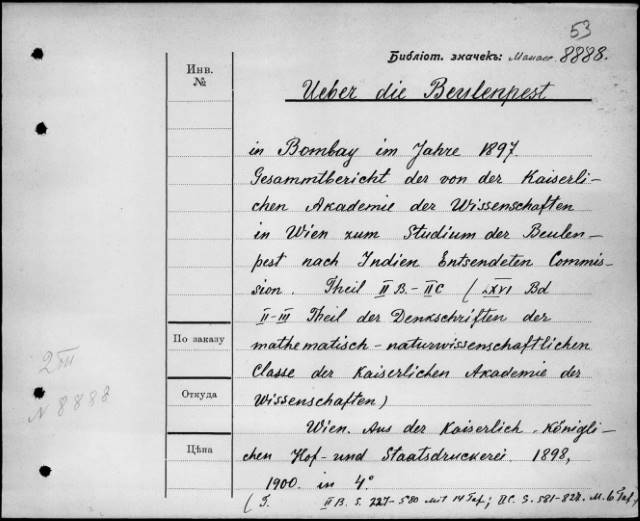 53
Библіот. значекъ: 8888.
Инв.
№
Ueber die Beulenpest
in Bombay im Jahre 1897.
Gesammtbericht der von der Kaiserli-
chen Akademie der Wissenschaften
in Wien zum Studium der Beulen-
pest nach Indien Entsendeten Commis-
sion. Theil II B.-II C ( LXVI Bd
II-III Theil der Denkschriften der
По заказу
mathematisch-naturwissenschaftlichen
2 III
Classe der Kaiserlichen Akademie der
Откуда
N 8888
Wissenschaften)
Wien. Aus der Kaiserlich-Königli-
Цѣна
chen Hof- und Staatsdruckerei. 1898,
1900. in 4°
( T. II B. S. 227-580 mit 14 Taf.; II C. S. 581-828. M. 6 Taf.)